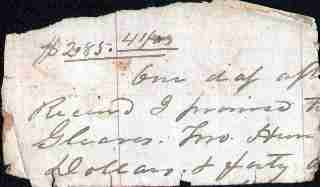 $ 285. 41/100
One day aft
Receivd I promised t
Gleaves. Two Hun
Dollars. & forty